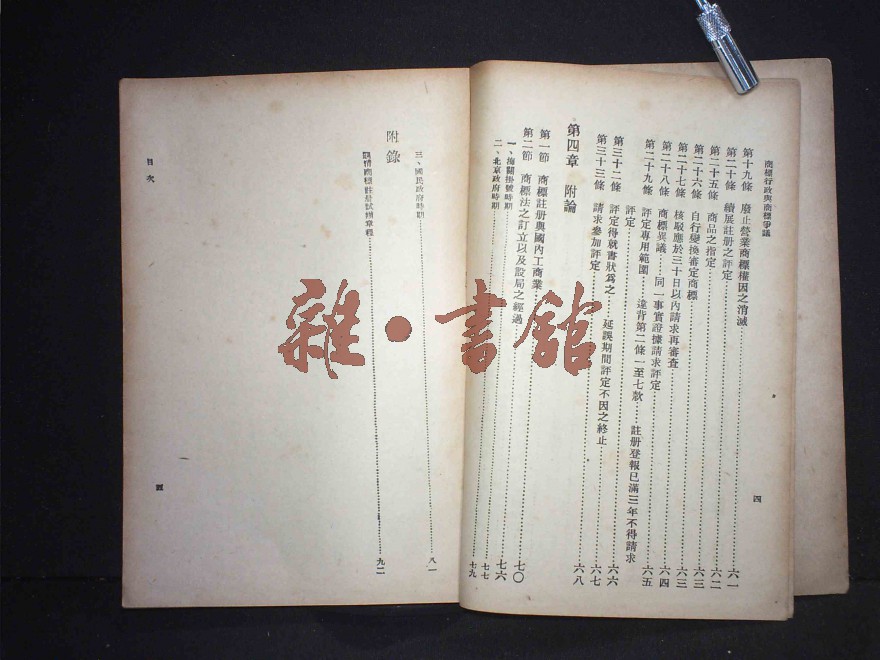 商標行政與商標爭議
四
第十九條 廢止營業商標權因之消滅……六一
第二十條 續展註册之評定……六二
第二十五條 商品之指定……六二
第二十六條 自行變換審定商標……六三
第二十七條 核駁應於三十日以內請求再審查……六三
第二十八條 商標異議……同一事實證據請求評定……六四
第二十九條 評定專用範圍……違背第二條一至七款……註册登報已滿三年不得請求
評定……六五
第三十二條 評定得就書狀爲之……延誤期間評定不因之終止……六六
第三十三條 請求參加評定……六七
第四章 附論……六八
第一節 商標註册與國內工商業……七〇
第二節 商標法之訂立以及設局之經過……七六
一、海關掛號時期……七七
二、北京政府時期……七九
三、國民政府時期……八一
附錄
商標註册試辦章程……九二
目次
五
雜•書館